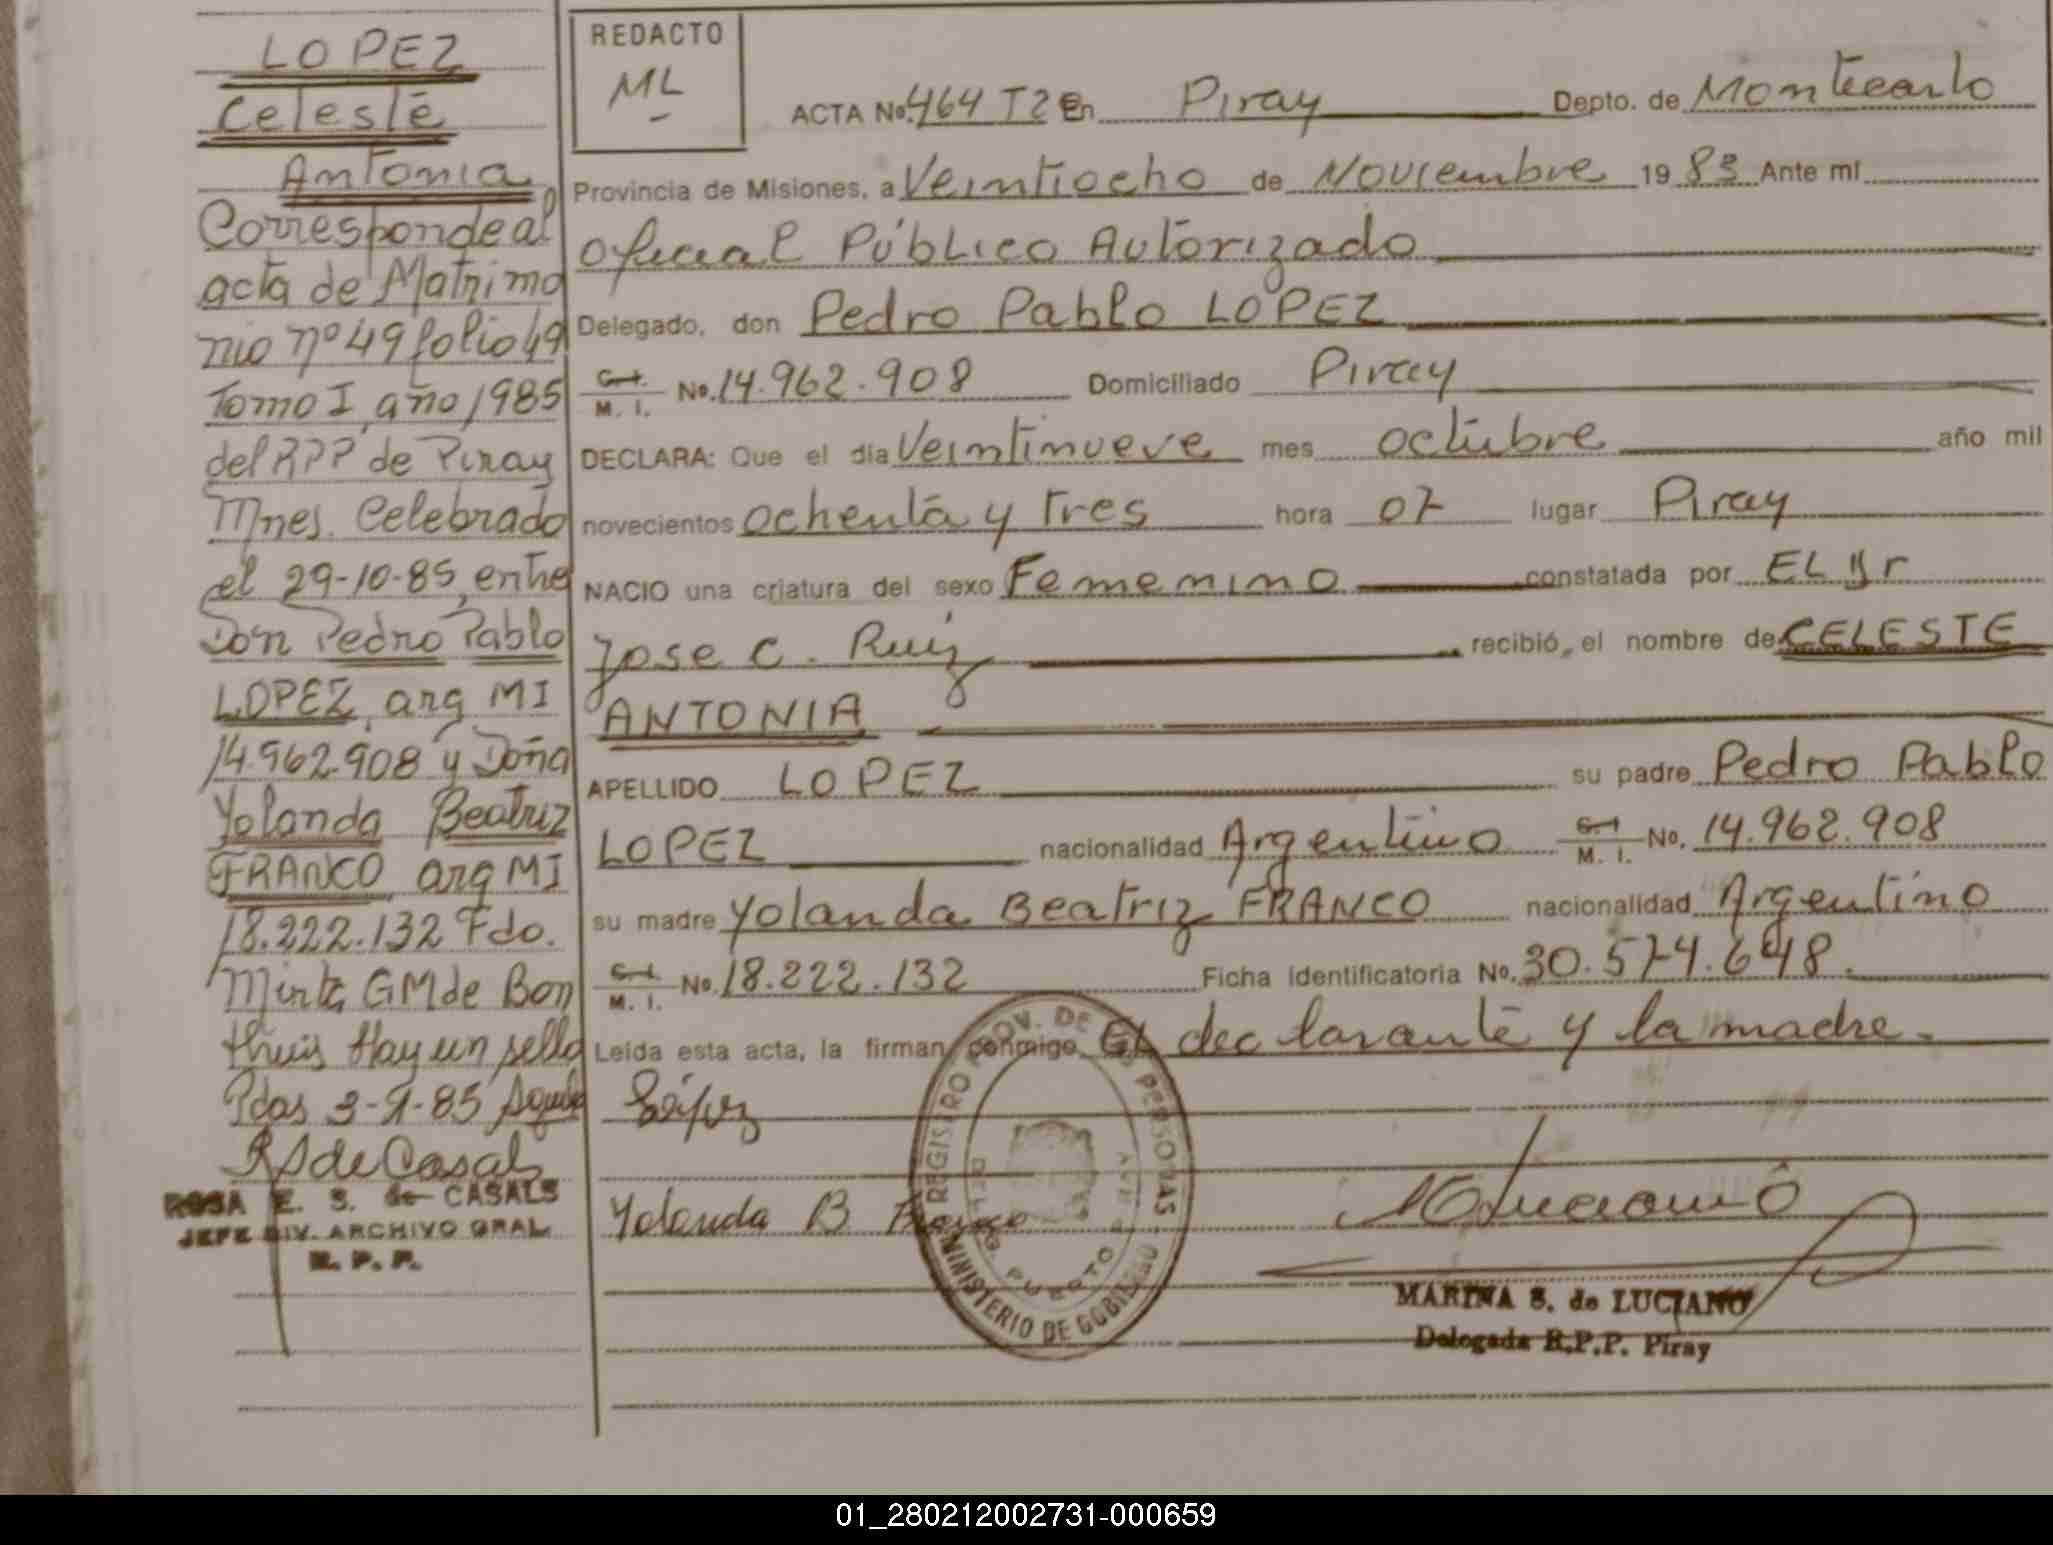 LOPEZ
Celeste
Antonia
Corresponde al
acta de Matrimo
nio nº 49 folio 49
Tomo I, año 1985
del RPP de Piray
Mnes. Celebrado
el 29-10-85, entre
Don Pedro Pablo
LOPEZ, arg MI
14.962.908 y Doña
Yolanda Beatriz
FRANCO arg MI
18.222.132 Fdo.
Mirta GM de Bon
thuis Hay un sello
Pdas 3-9-85
RS de Casals
ROSA E. S. de CASALS
JEFE DIV. ARCHIVO GRAL
R. P. P.
REDACTO
ML
ACTA No. 464 T2 En Piray Depto. de Montecarlo
Provincia de Misiones, a Veintiocho de Noviembre 1983 Ante mi
Oficial Público Autorizado
Delegado, don Pedro Pablo LOPEZ
C. I. M. I. No. 14.962.908 Domiciliado Piray
DECLARA: Que el día Veintinueve mes octubre año mil
novecientos ochenta y tres hora 07 lugar Piray
NACIO una criatura del sexo Femenino constatada por EL
Jose C. Ruiz recibió, el nombre de CELESTE
ANTONIA
APELLIDO LOPEZ su padre Pedro Pablo
LOPEZ nacionalidad Argentino C. I. M. I. No. 14.962.908
su madre Yolanda Beatriz FRANCO nacionalidad Argentino
C. I. M. I. No. 18.222.132 Ficha Identificatoria No. 30.574.648.
Leída esta acta, la firman conmigo El declarante y la madre.
López
Yolanda B Franco
REGISTRO PROV. DE LAS PERSONAS
DELEG. PUERTO PIRAY
MINISTERIO DE GOBIERNO
MSLuciano
MARINA S. de LUCIANO
Delegada R.P.P. Piray
01_280212002731-000659